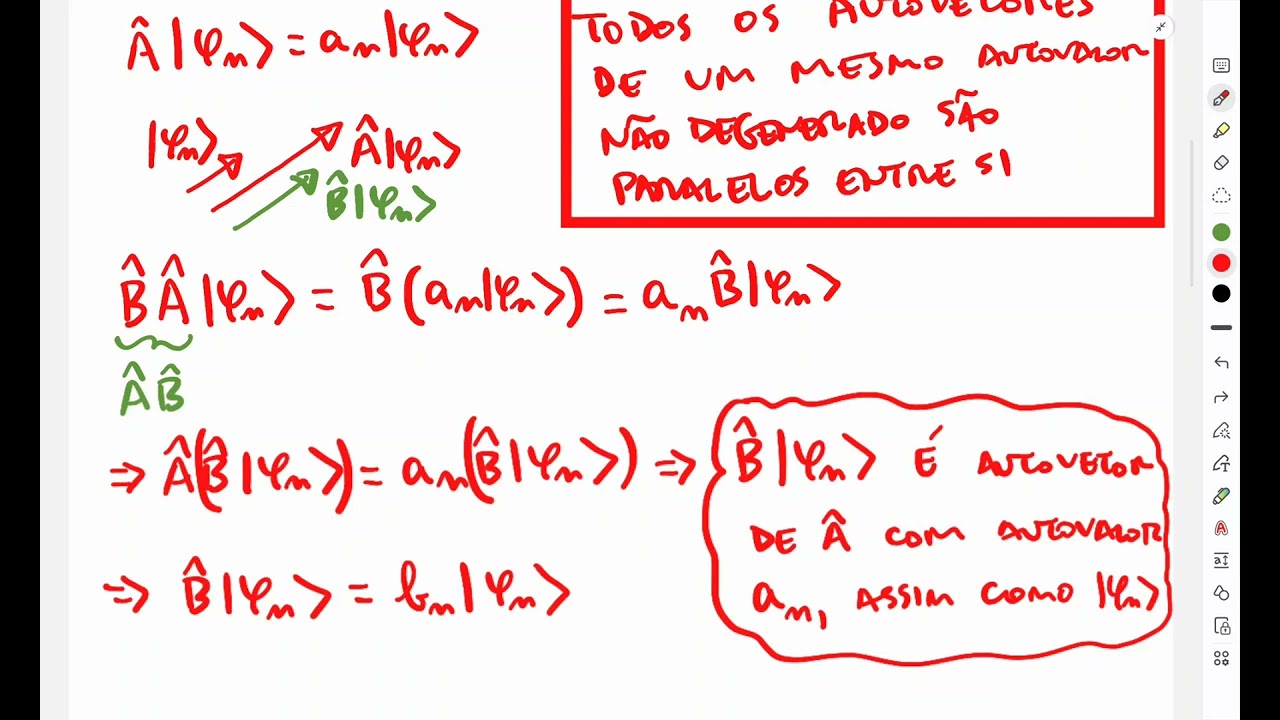 Â|φₙ⟩ = aₙ|φₙ⟩
TODOS OS AUTOVETORES
DE UM MESMO AUTOVALOR
NÃO DEGENERADO SÃO
PARALELOS ENTRE SI
|φₙ⟩ Â|φₙ⟩
B̂|φₙ⟩
B̂Â|φₙ⟩ = B̂(aₙ|φₙ⟩) = aₙB̂|φₙ⟩
ÂB̂
⇒ Â(B̂|φₙ⟩) = aₙ(B̂|φₙ⟩) ⇒
B̂|φₙ⟩ É AUTOVETOR
DE Â COM AUTOVALOR
aₙ, ASSIM COMO |φₙ⟩
⇒ B̂|φₙ⟩ = bₙ|φₙ⟩